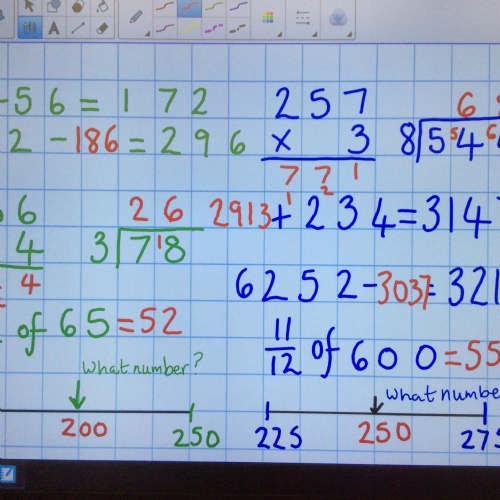 -56 = 172
2 - 186 = 296
257
x 3
771
1 2
6
8 5 5 4 6
6
4
4
26
3 7 1 8
2913 + 234 = 314
6252 - 3037 = 321
of 65 = 52
11/12 of 600 = 55
what number?
200
250
what numbe
225
250
275